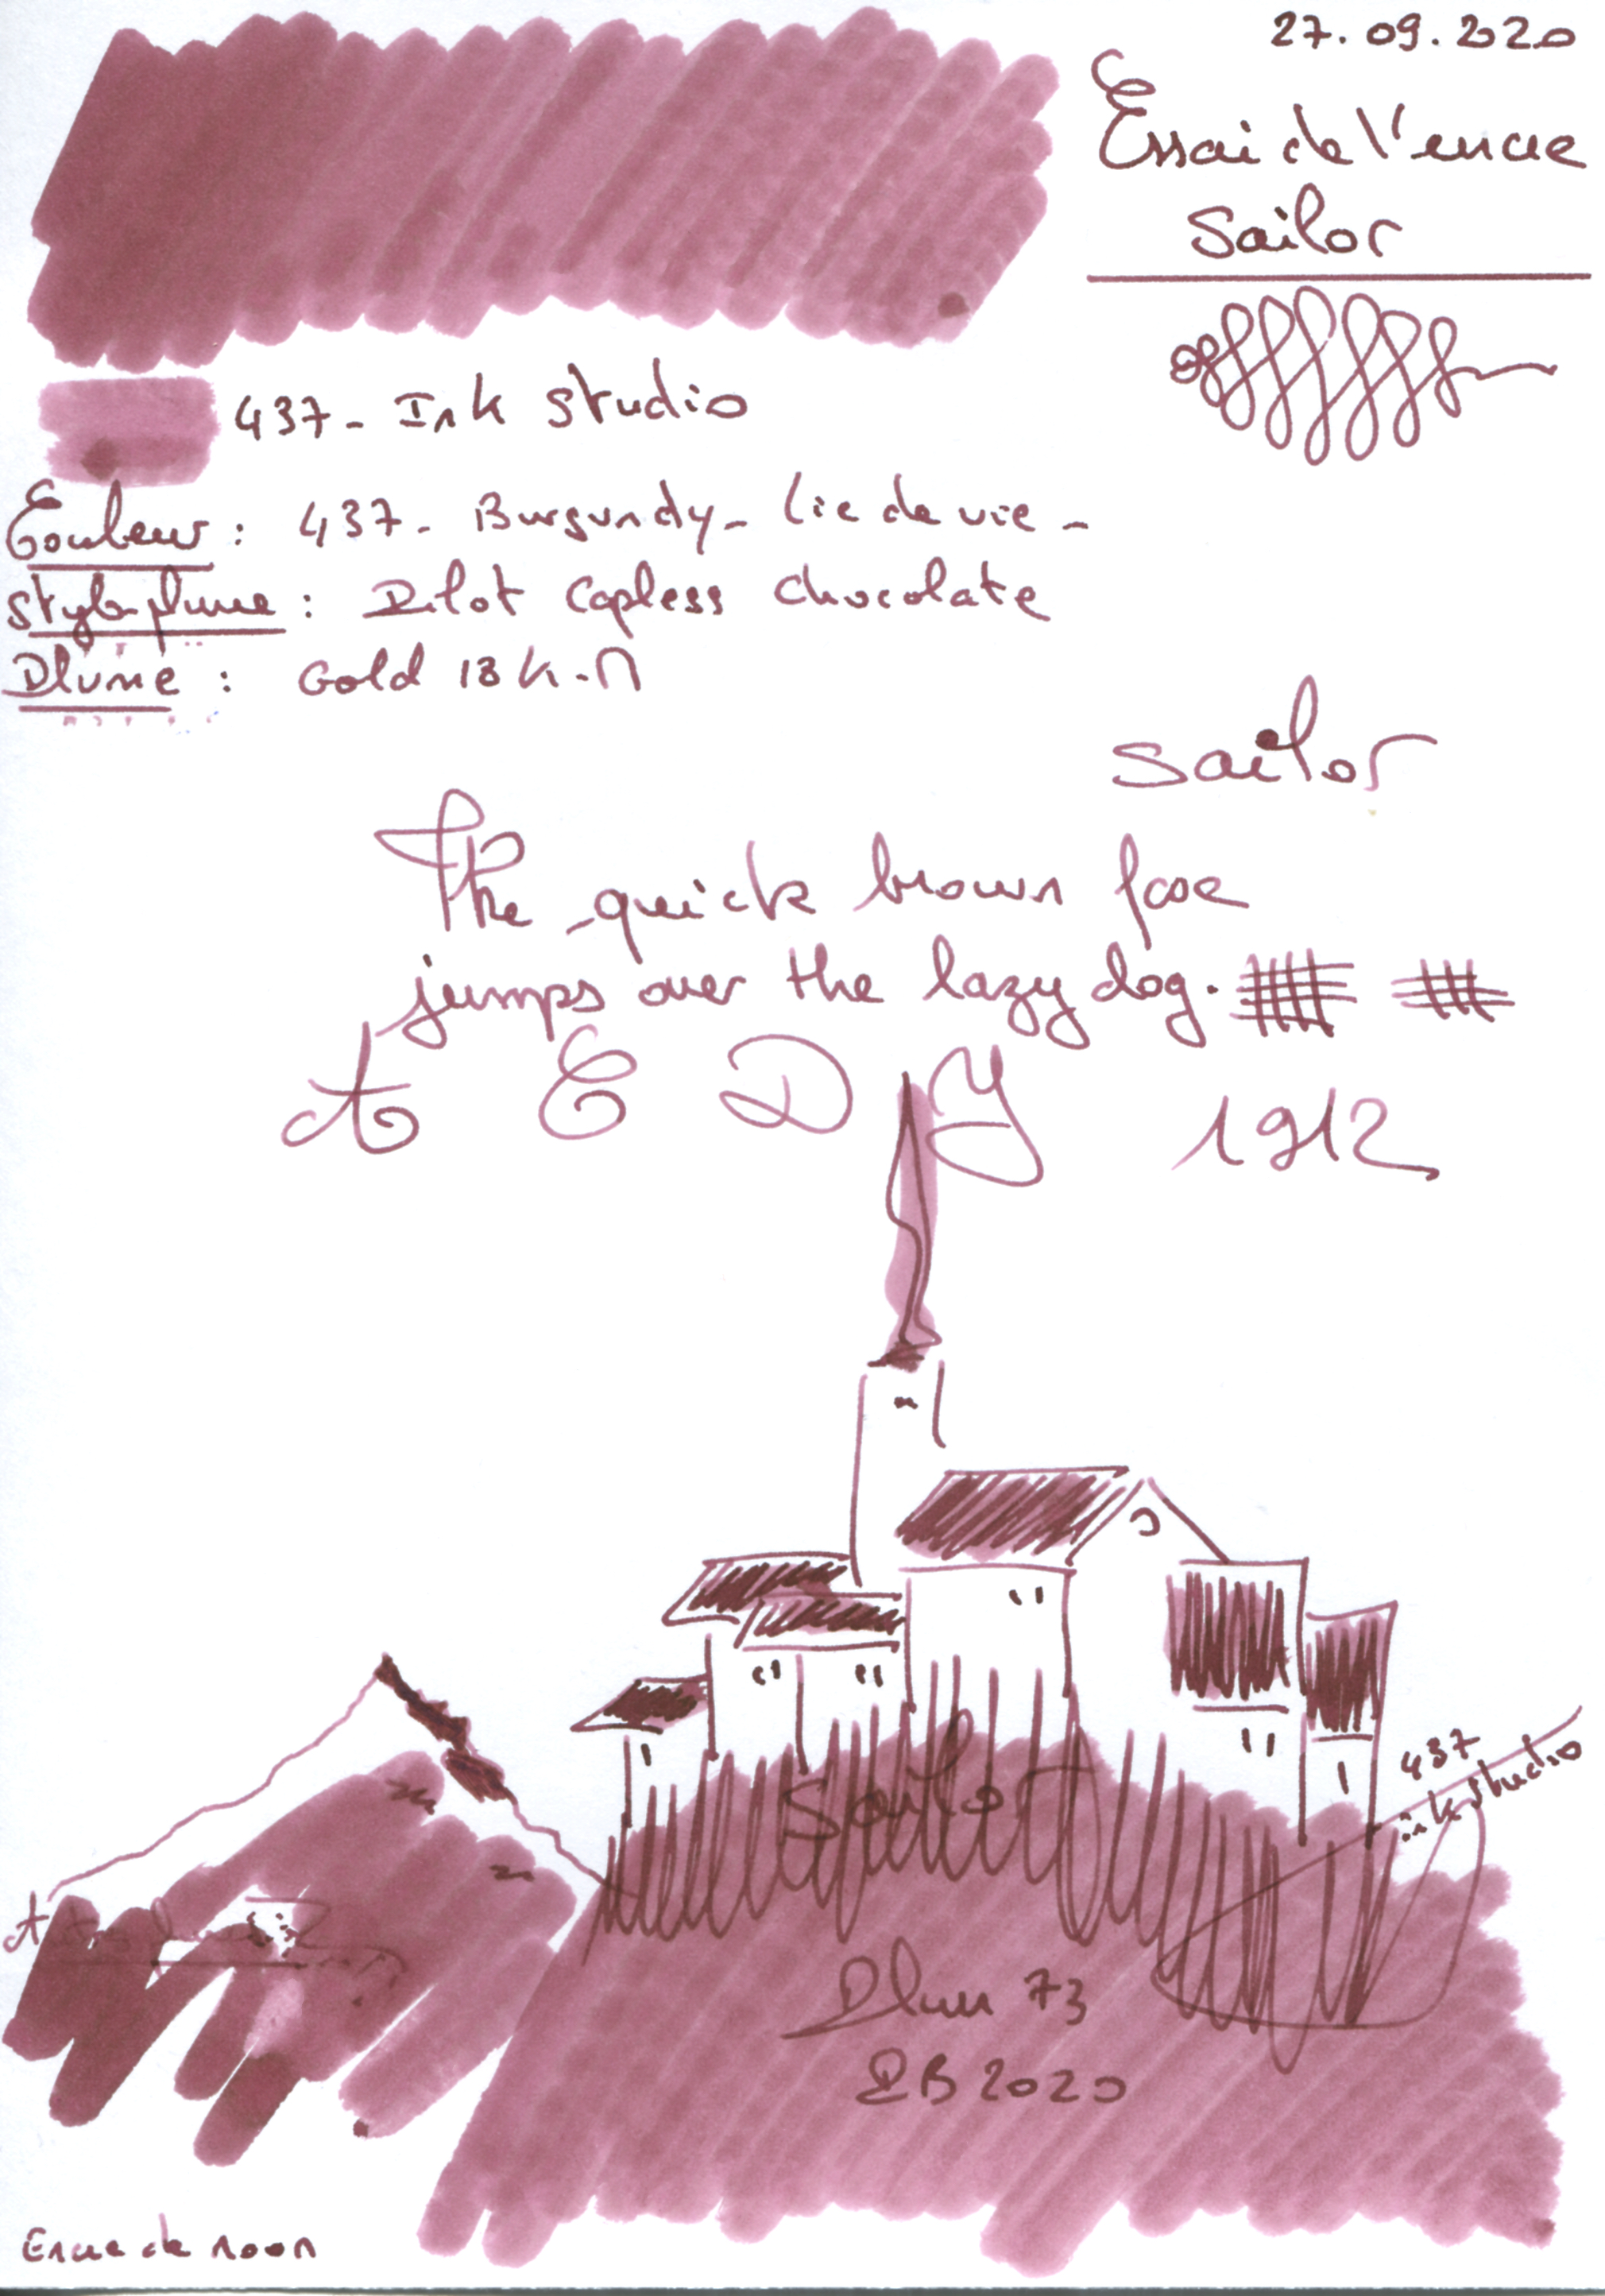 27.09.2020
Essai de l'encre
Sailor
437 - Ink Studio
Couleur : 437 - Burgundy - Lie de vie -
Stylo plume : Pilot Capless Chocolate
Plume : Gold 18 K - M
Sailor
The quick brown fox
jumps over the lazy dog.
A E D Y 1912
437
ink studio
Sailor
Plum 73
PB 2020
Encre de noon